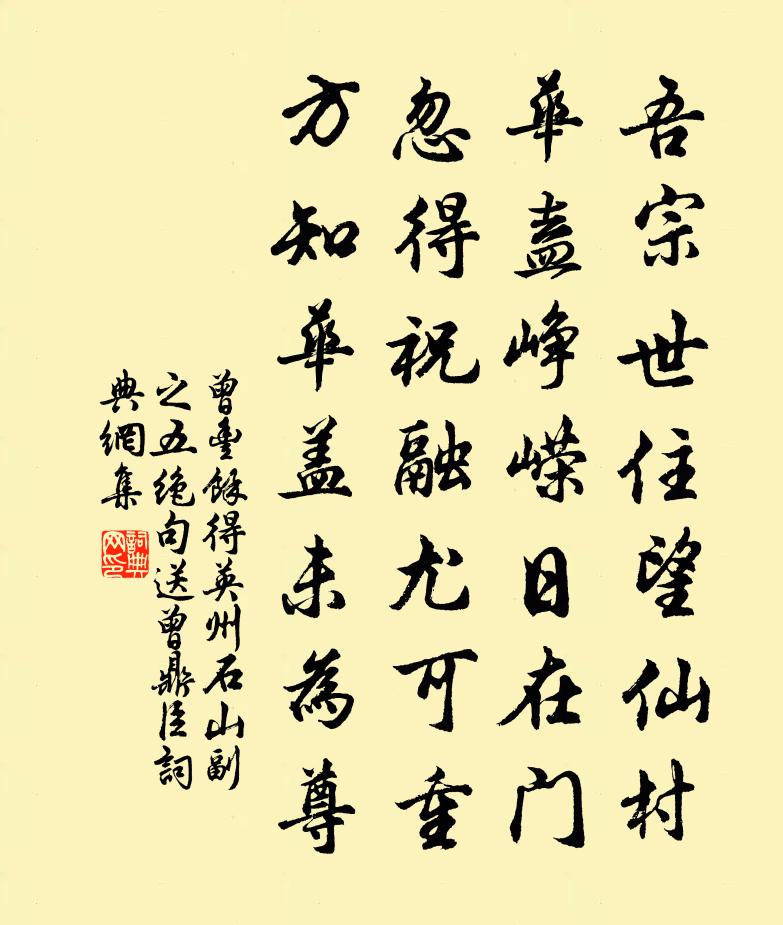 吾宗世住望仙村
華盖峥嵘日在门
忽得祝融尤可重
方知華盖未為尊
曾豊馀得英州石山副
之五绝句送曾鼎臣詞
典網集
詞典网印